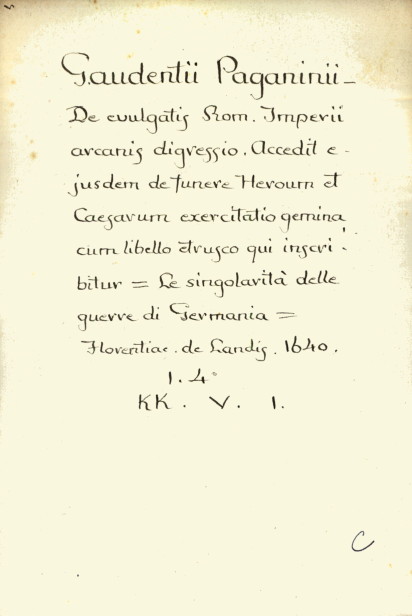 Gaudentii Paganinii_
De evulgatis Rom. Imperii
arcanis digressio. Accedit e-
jusdem de funere Heroum et
Caesarum exercitatio gemina
cum libello etrusco qui inscri-
bitur = Le singolarità delle
guerre di Germania =
Florentiae. de Landis. 1640.
1. 4°
KK. V. 1.
C